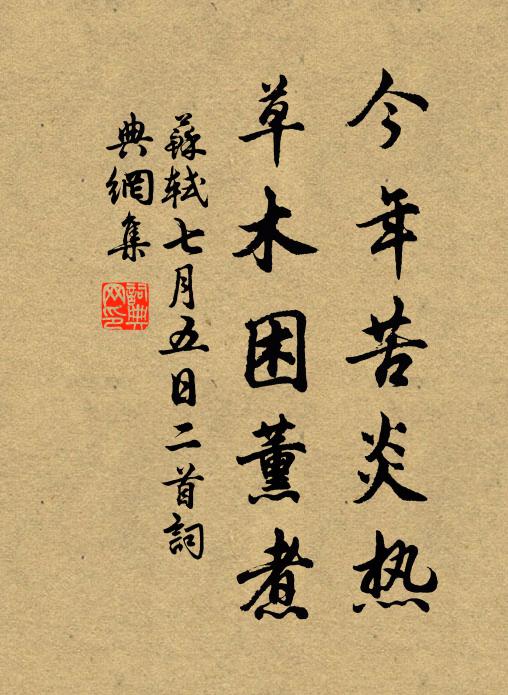 今年苦炎热
草木困薰煮
蘇軾七月五日二首詞
典網集
詞典网印